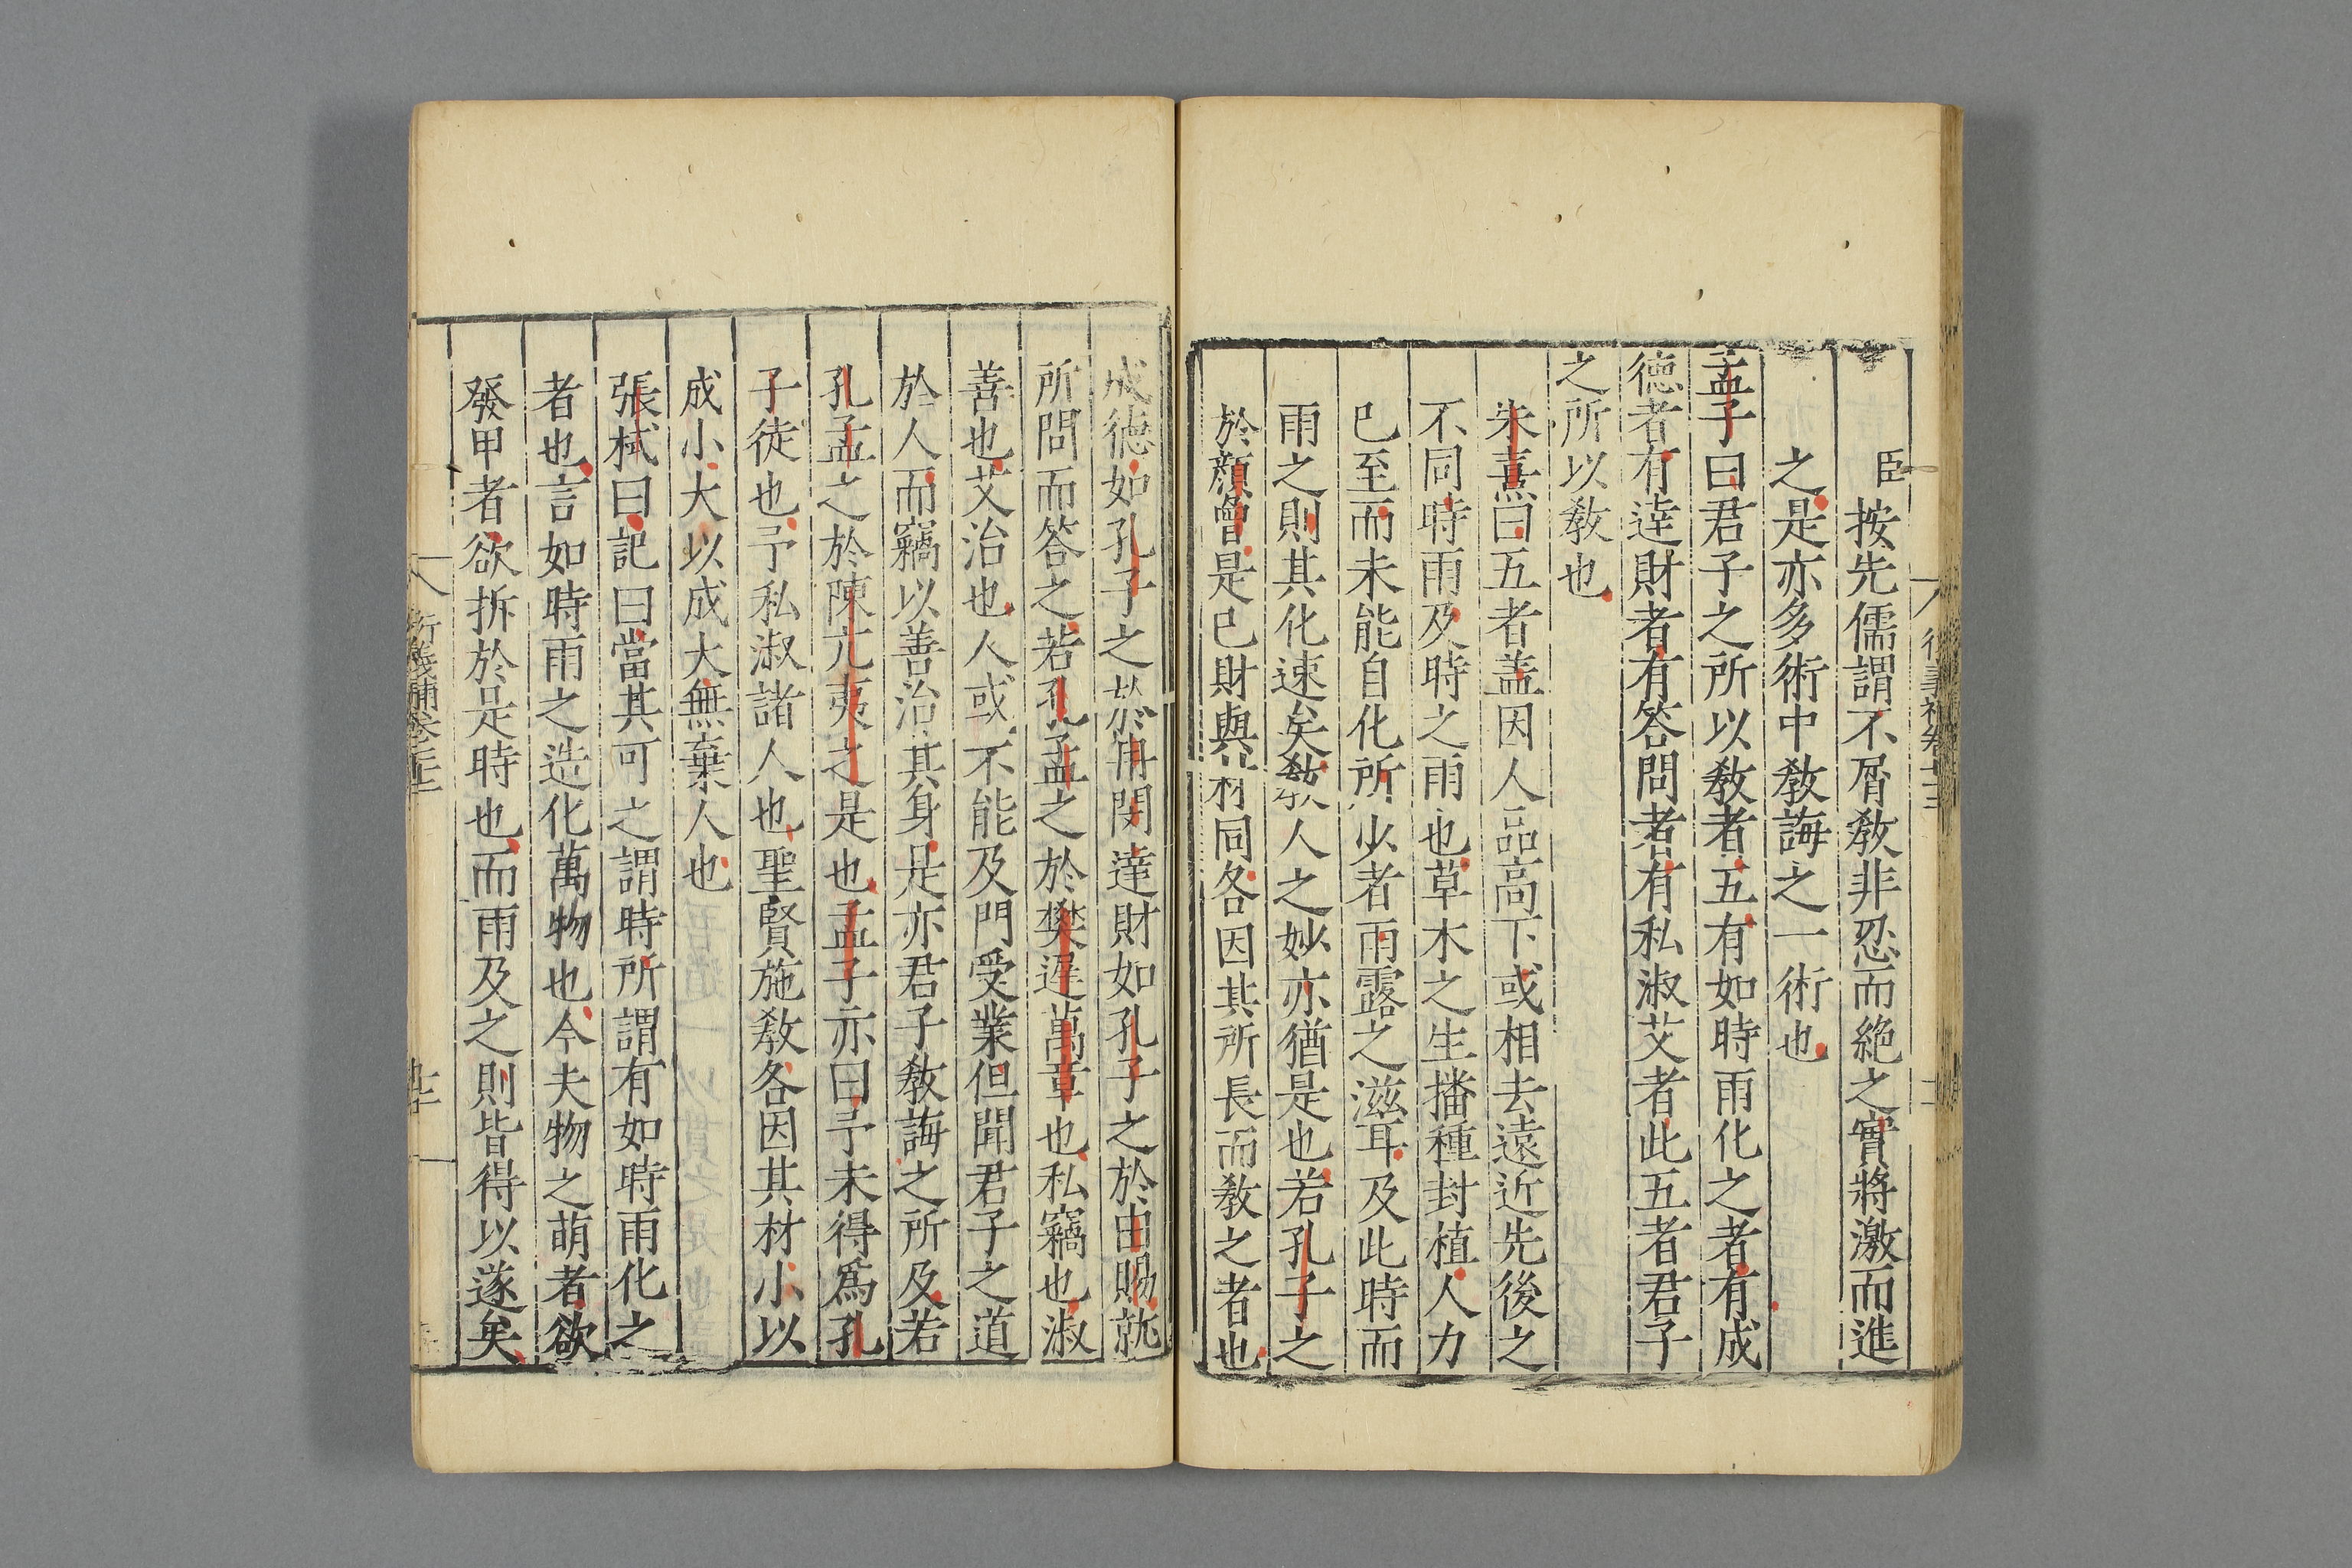 臣按先儒謂不屑敎非忍而絶之實將激而進
之是亦多術中敎誨之一術也
孟子曰君子之所以敎者五有如時雨化之者有成
徳者有達財者有答問者有私淑艾者此五者君子
之所以敎也
朱熹曰五者盖因人品高下或相去遠近先後之
不同時雨及時之雨也草木之生播種封植人力
已至而未能自化所少者雨露之滋耳及此時而
雨之則其化速矣敎人之妙亦猶是也若孔子之
於顔曾是已財與材同各因其所長而敎之者也
成徳如孔子之於冉閔達財如孔子之於由賜就
所問而答之若孔孟之於樊遲萬章也私竊也淑
善也艾治也人或不能及門受業但聞君子之道
於人而竊以善治其身是亦君子敎誨之所及若
孔孟之於陳亢夷之是也孟子亦曰予未得爲孔
子徒也予私淑諸人也聖賢施敎各因其材小以
成小大以成大無棄人也
張栻曰記曰當其可之謂時所謂有如時雨化之
者也言如時雨之造化萬物也今夫物之萌者欲
發甲者欲拆於是時也而雨及之則皆得以遂矣
衍義補卷七十三